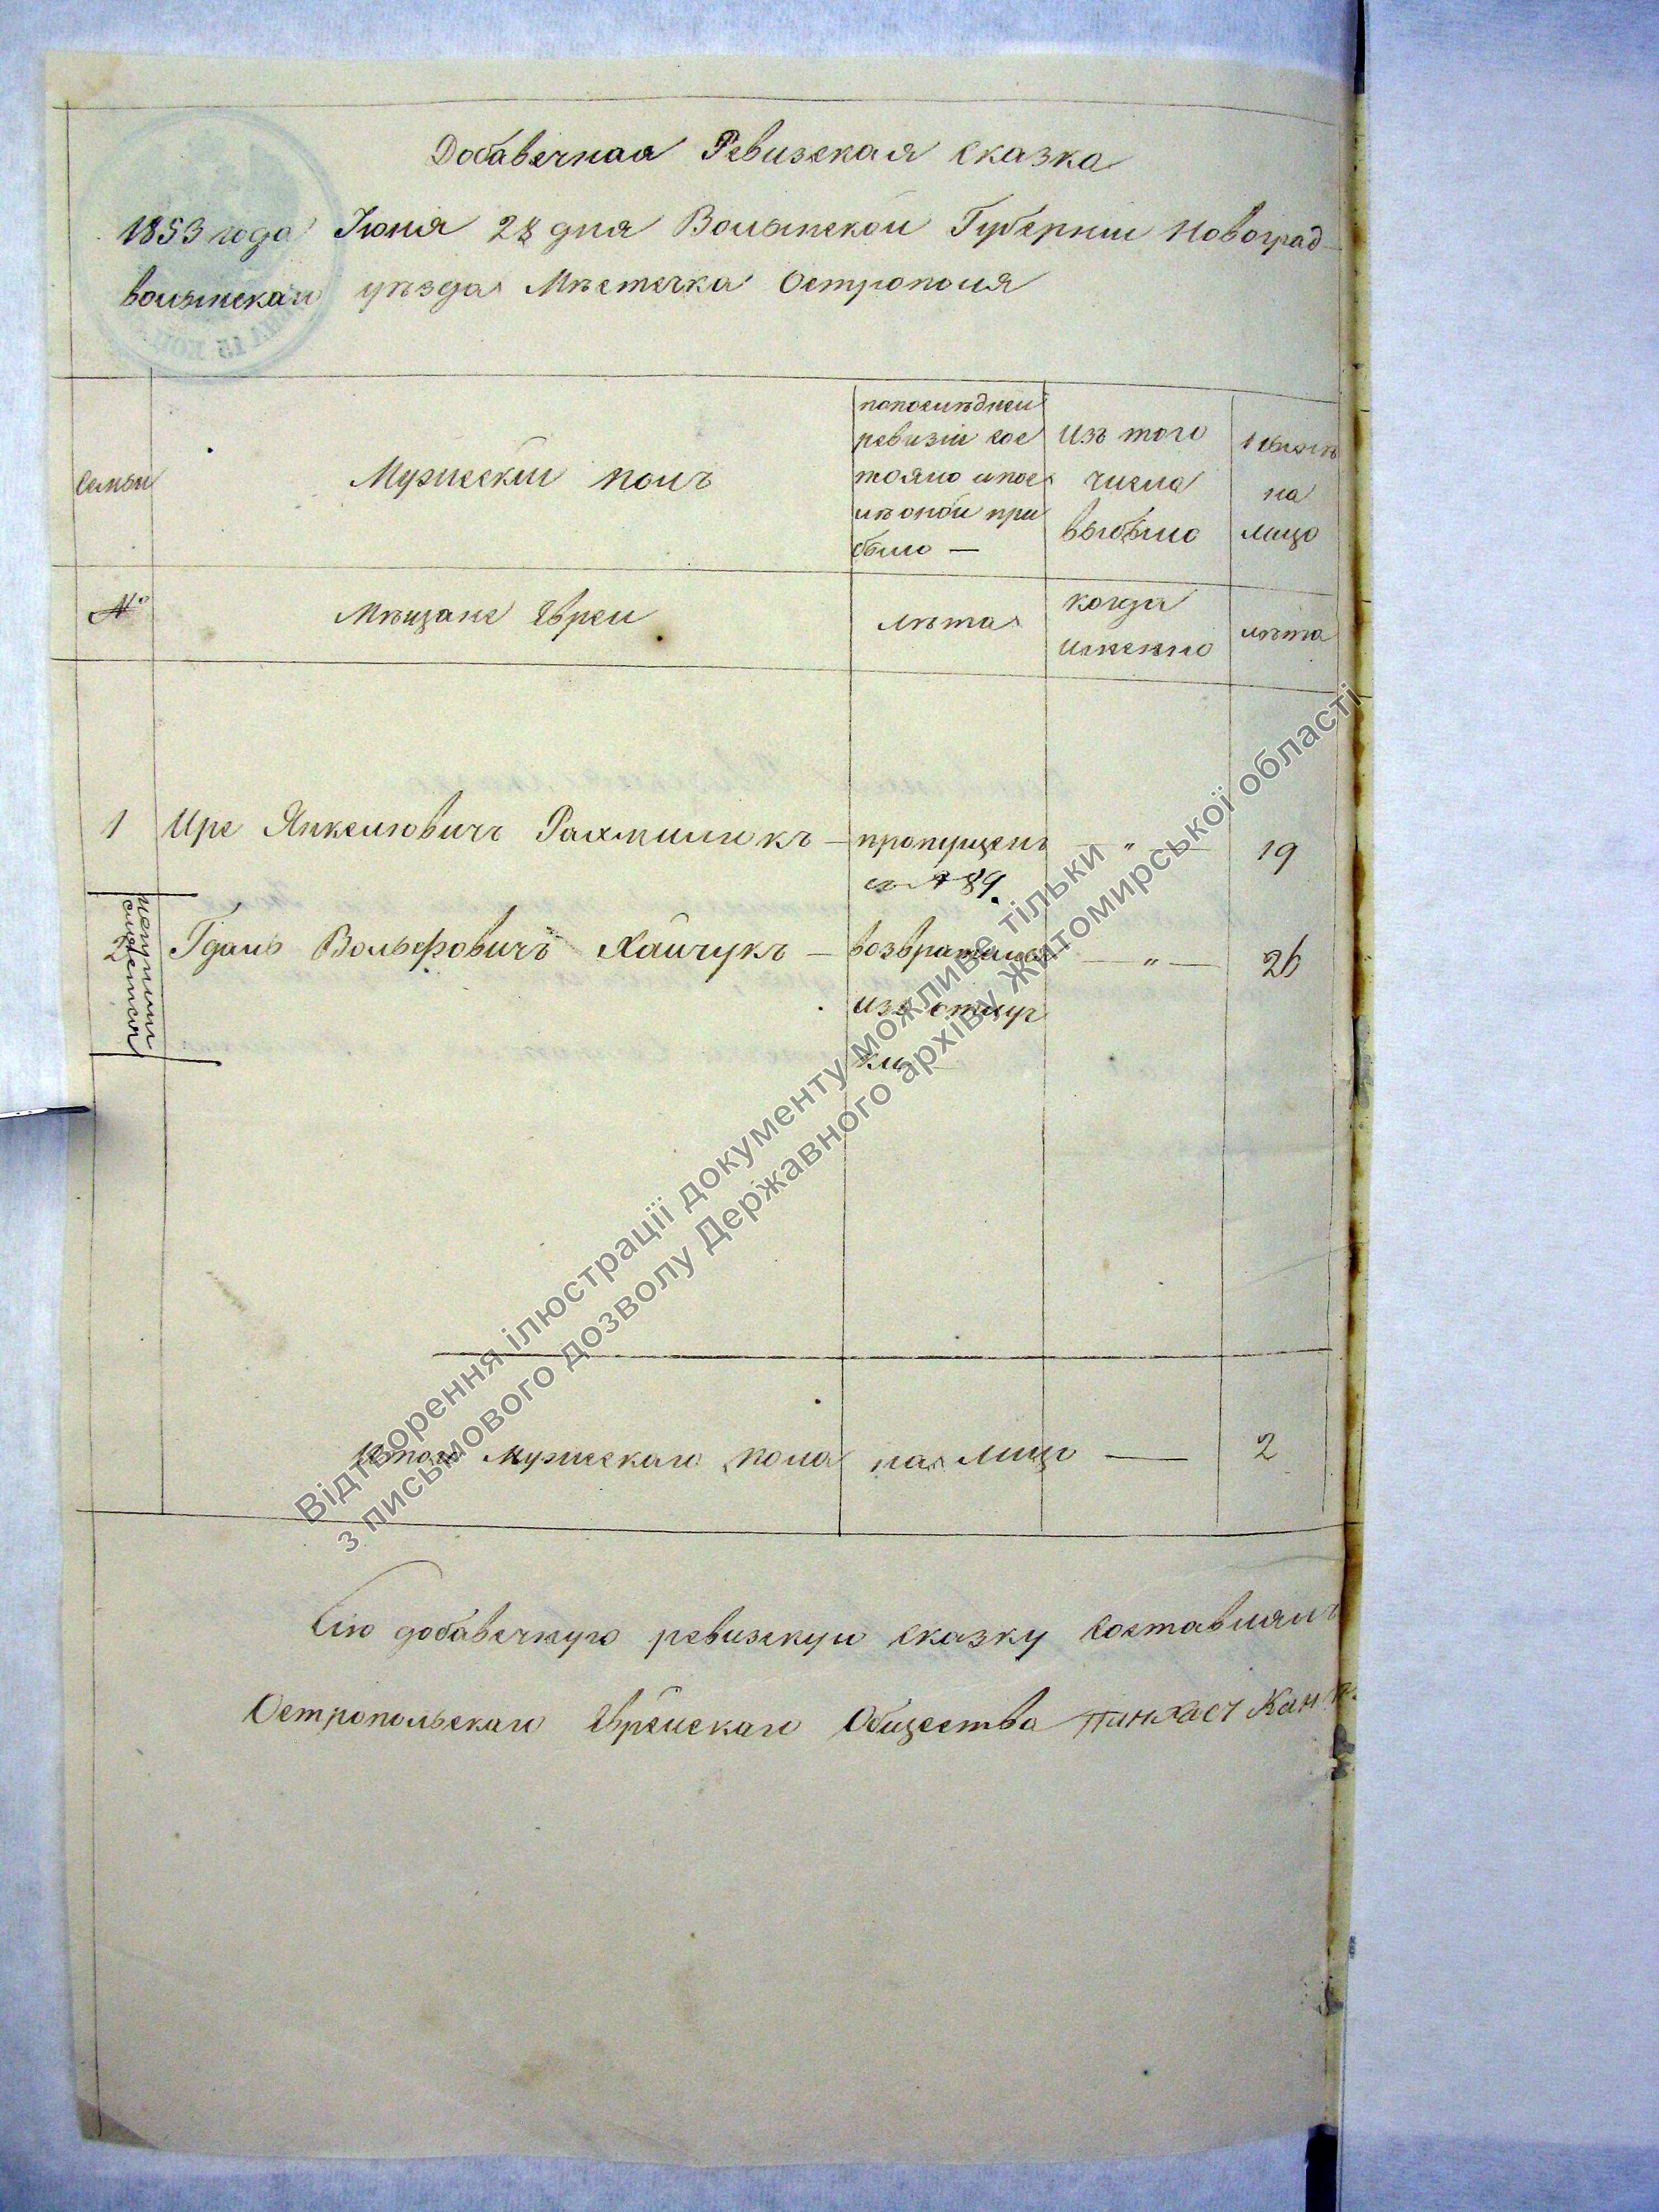 Добавечная Ревизская сказка
1853 года Іюня 28 дня Волынской Губерніи Новоград
волынскаго уѣзда Мѣстечка Острополя
Семьи
Мужескій полъ
попослѣдней
ревизіи сос
тояло ипос
лѣ оной при
было —
Изъ того
числа
выбыло
на
лицо
№
Мѣщане Евреи
лѣта
когда
именно
лѣта
1 Ире Янкелювичъ Рахмиликъ — пропущенъ — „ — 19
89.
2 Гдаль Вольфовичъ Хайчукъ — возвратился — „ — 26
изъ отлуч
ки —
Итого Мужескаго пола на лицо — 2
Сію добавечную ревизскую сказку Составлялъ
Остропольскаго Еврейскаго Общества Пинхасъ
Відтворення ілюстрації документу можливе тільки
з письмового дозволу Державного архіву Житомирської області